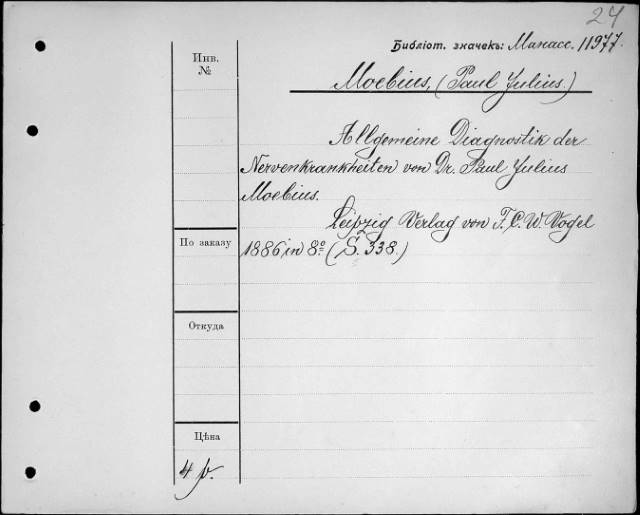 24
Библіот. значекъ: Манасс. 11977.
Инв.
№
Moebius, (Paul Julius.)
Allgemeine Diagnostik der
Nervenkrankheiten von Dr. Paul Julius
Moebius.
Leipzig Verlag von F. C. W. Vogel
По заказу
1886 in 8º (S. 338.)
Откуда
Цѣна
4 р.